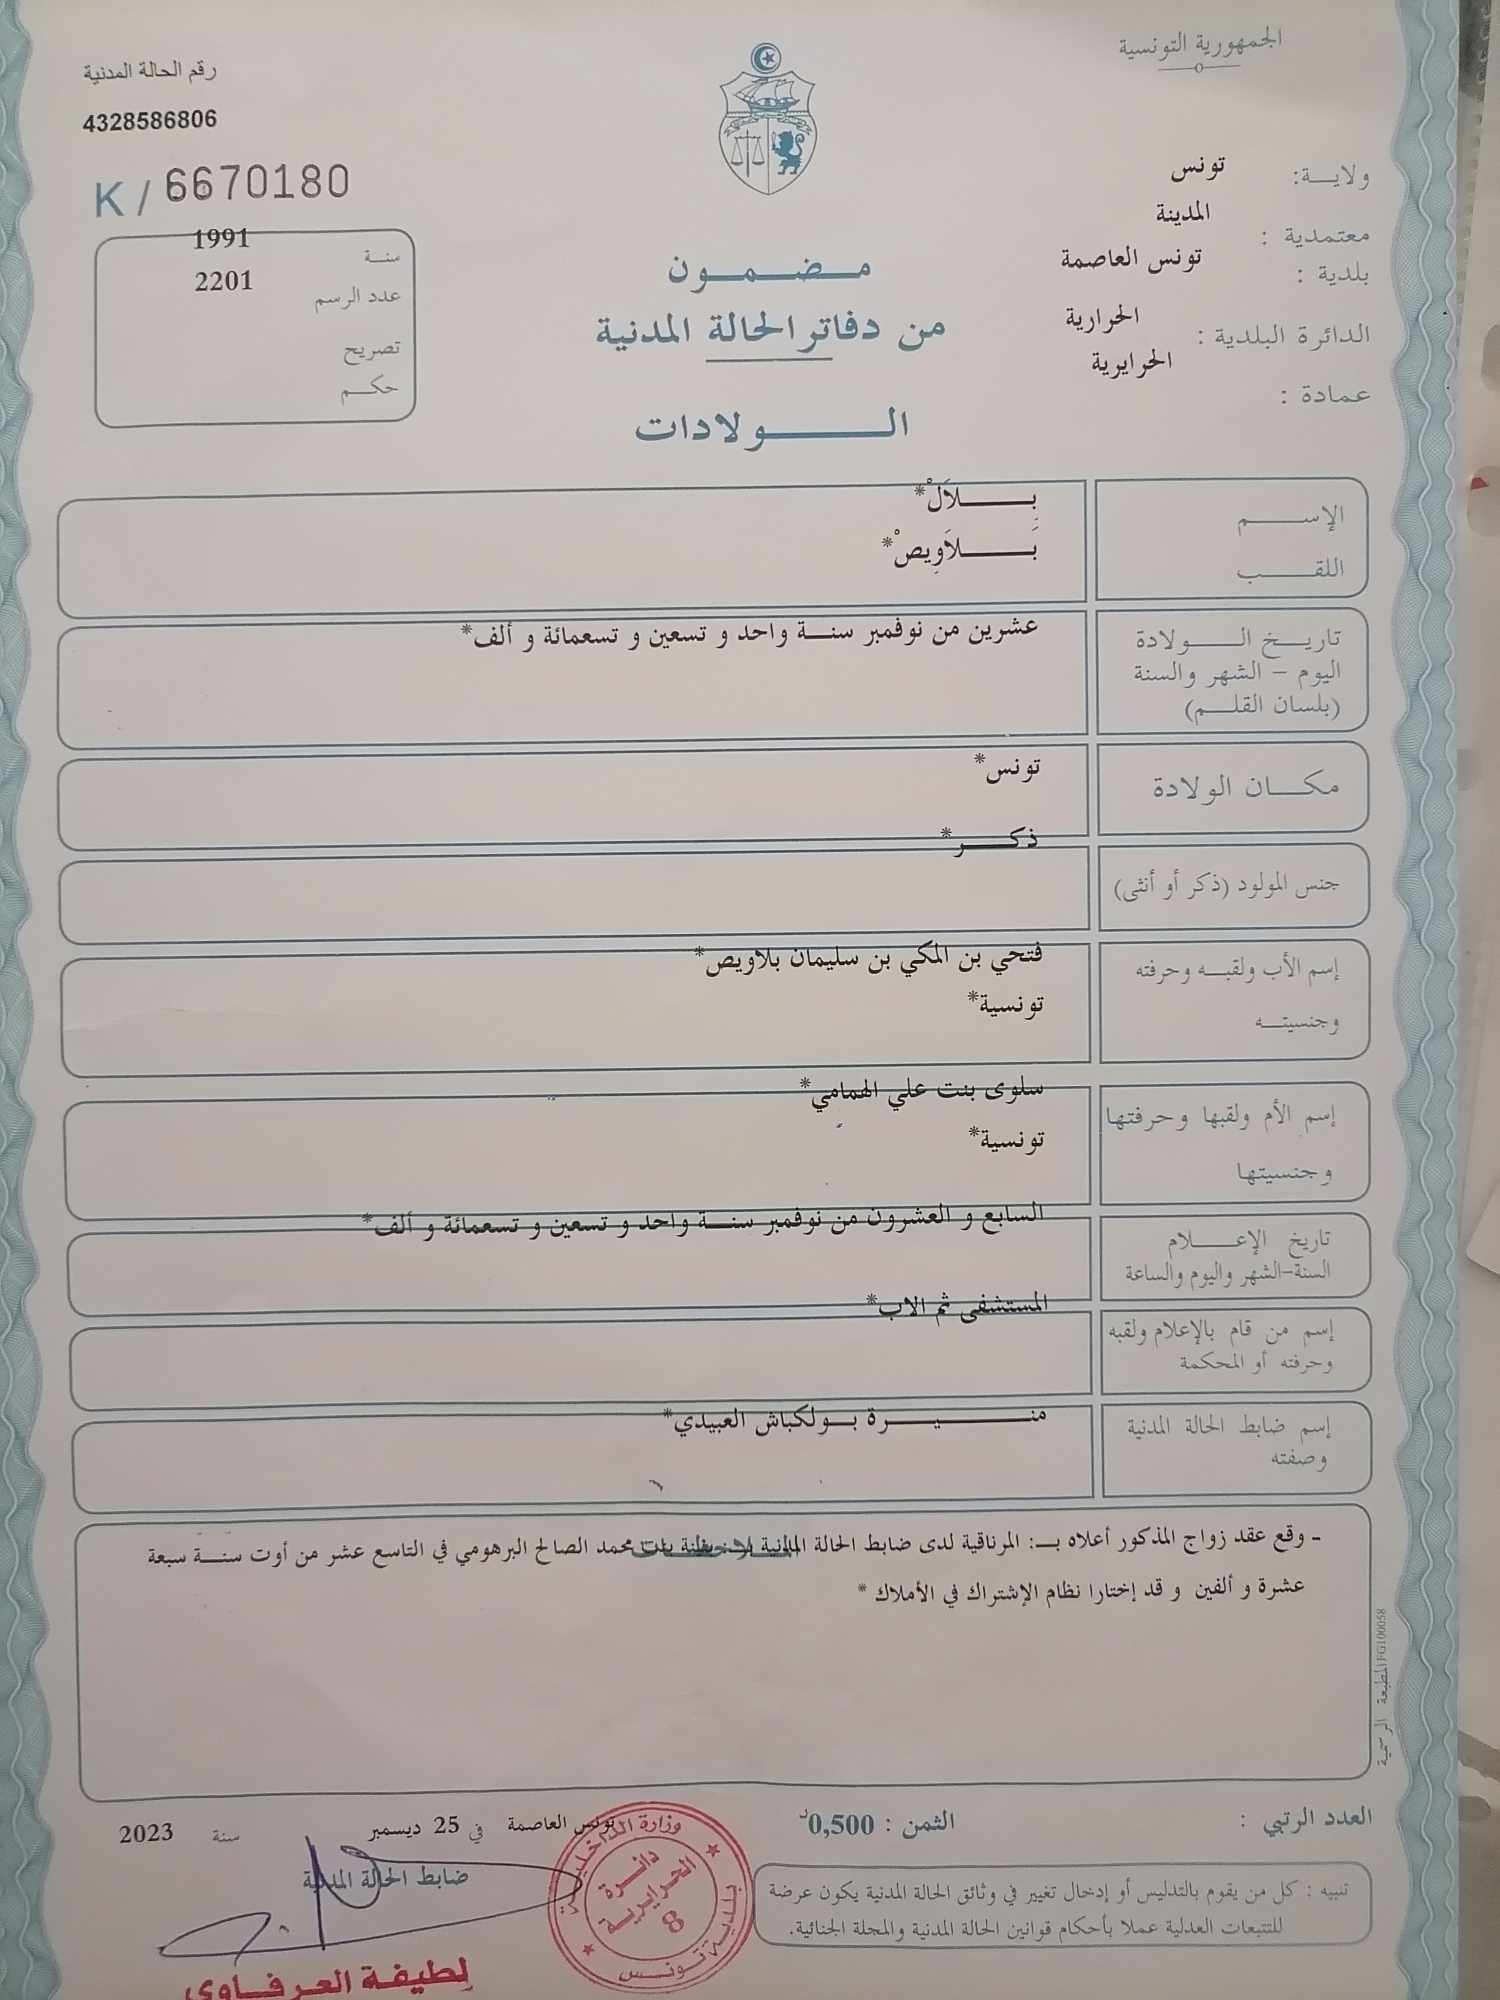 الجمهورية التونسية
رقم الحالة المدنية
4328586806
K / 6670180
ولايــة: تونس
معتمدية : المدينة
بلدية : تونس العاصمة
الدائرة البلدية : الحرارية
عمادة : الحرايرية
سنــة 1991
عدد الرسم 2201
تصريح
حكــم
مــضــمــون
من دفاتر الحالة المدنية
الــــولادات
الإســـــم بِـــــلاَلْ*
اللقـــب بَـــــلاَوِيصْ*
تاريــخ الـــــولادة عشرين من نوفمبر سنــة واحد و تسعين و تسعمائة و ألف*
اليوم – الشهر والسنة
(بلسان القلــم)
مكـــان الولادة تونس*
جنس المولود (ذكر أو أنثى) ذكـــــر*
إسم الأب ولقبــه وحرفته فتحي بن المكي بن سليمان بلاويص*
وجنسيتــه تونسية*
إسم الأم ولقبها وحرفتها سلوى بنت علي الهمامي*
وجنسيتها تونسية*
تاريخ الإعـــــلام السابع و العشرون من نوفمبر سنــة واحد و تسعين و تسعمائة و ألف*
السنة-الشهر واليوم والساعة
إسم من قام بالإعلام ولقبه المستشفى ثم الاب*
وحرفته أو المحكمة
إسم ضابط الحالة المدنية منـــــــيـــــــرة بــولكباش العبيدي*
وصفته
- وقع عقد زواج المذكور أعلاه بــ: المرناقية لدى ضابط الحالة المدنية محمد الصالح البرهومي في التاسع عشر من أوت سنــة سبعة
عشرة و ألفين و قد إختارا نظام الإشتراك في الأملاك *
المطبعة الرسمية FG100058
العدد الرتبي :
الثمن : 0,500د
تونس العاصمة في 25 ديسمبر سنة 2023
ضابط الحالة المدنية
تنبيه : كل من يقوم بالتدليس أو إدخال تغيير في وثائق الحالة المدنية يكون عرضة
للتتبعات العدلية عملا بأحكام قوانين الحالة المدنية والمجلة الجنائية.
وزارة الداخلية
دائرة
الحرايرية
8
بلدية تونس
لطيفة العرفاوي